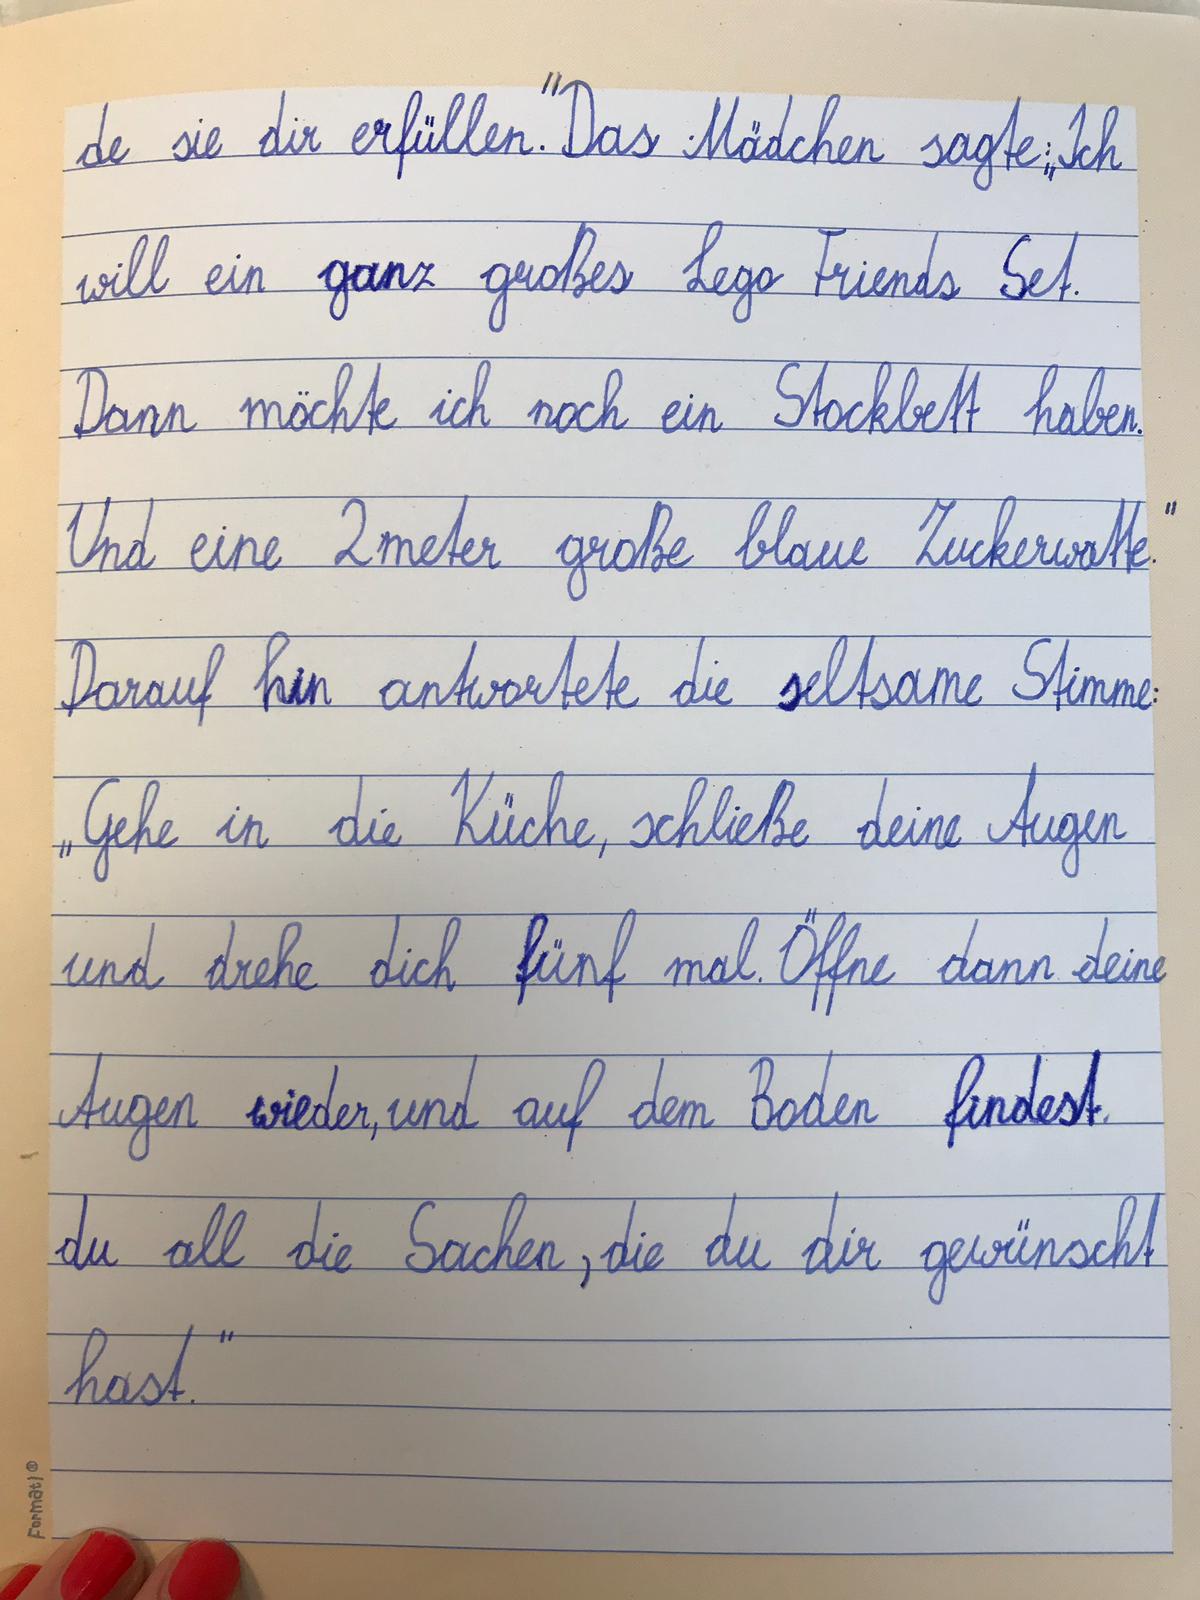 de sie dir erfüllen." Das Mädchen sagte: „Ich
will ein ganz großes Lego Friends Set.
Dann möchte ich noch ein Stockbett haben.
Und eine 2meter große blaue Zuckerwatte."
Darauf hin antwortete die seltsame Stimme:
„Gehe in die Küche, schließe deine Augen
und drehe dich fünf mal. Öffne dann deine
Augen wieder, und auf dem Boden findest.
du all die Sachen, die du dir gewünscht
hast."
Format)®